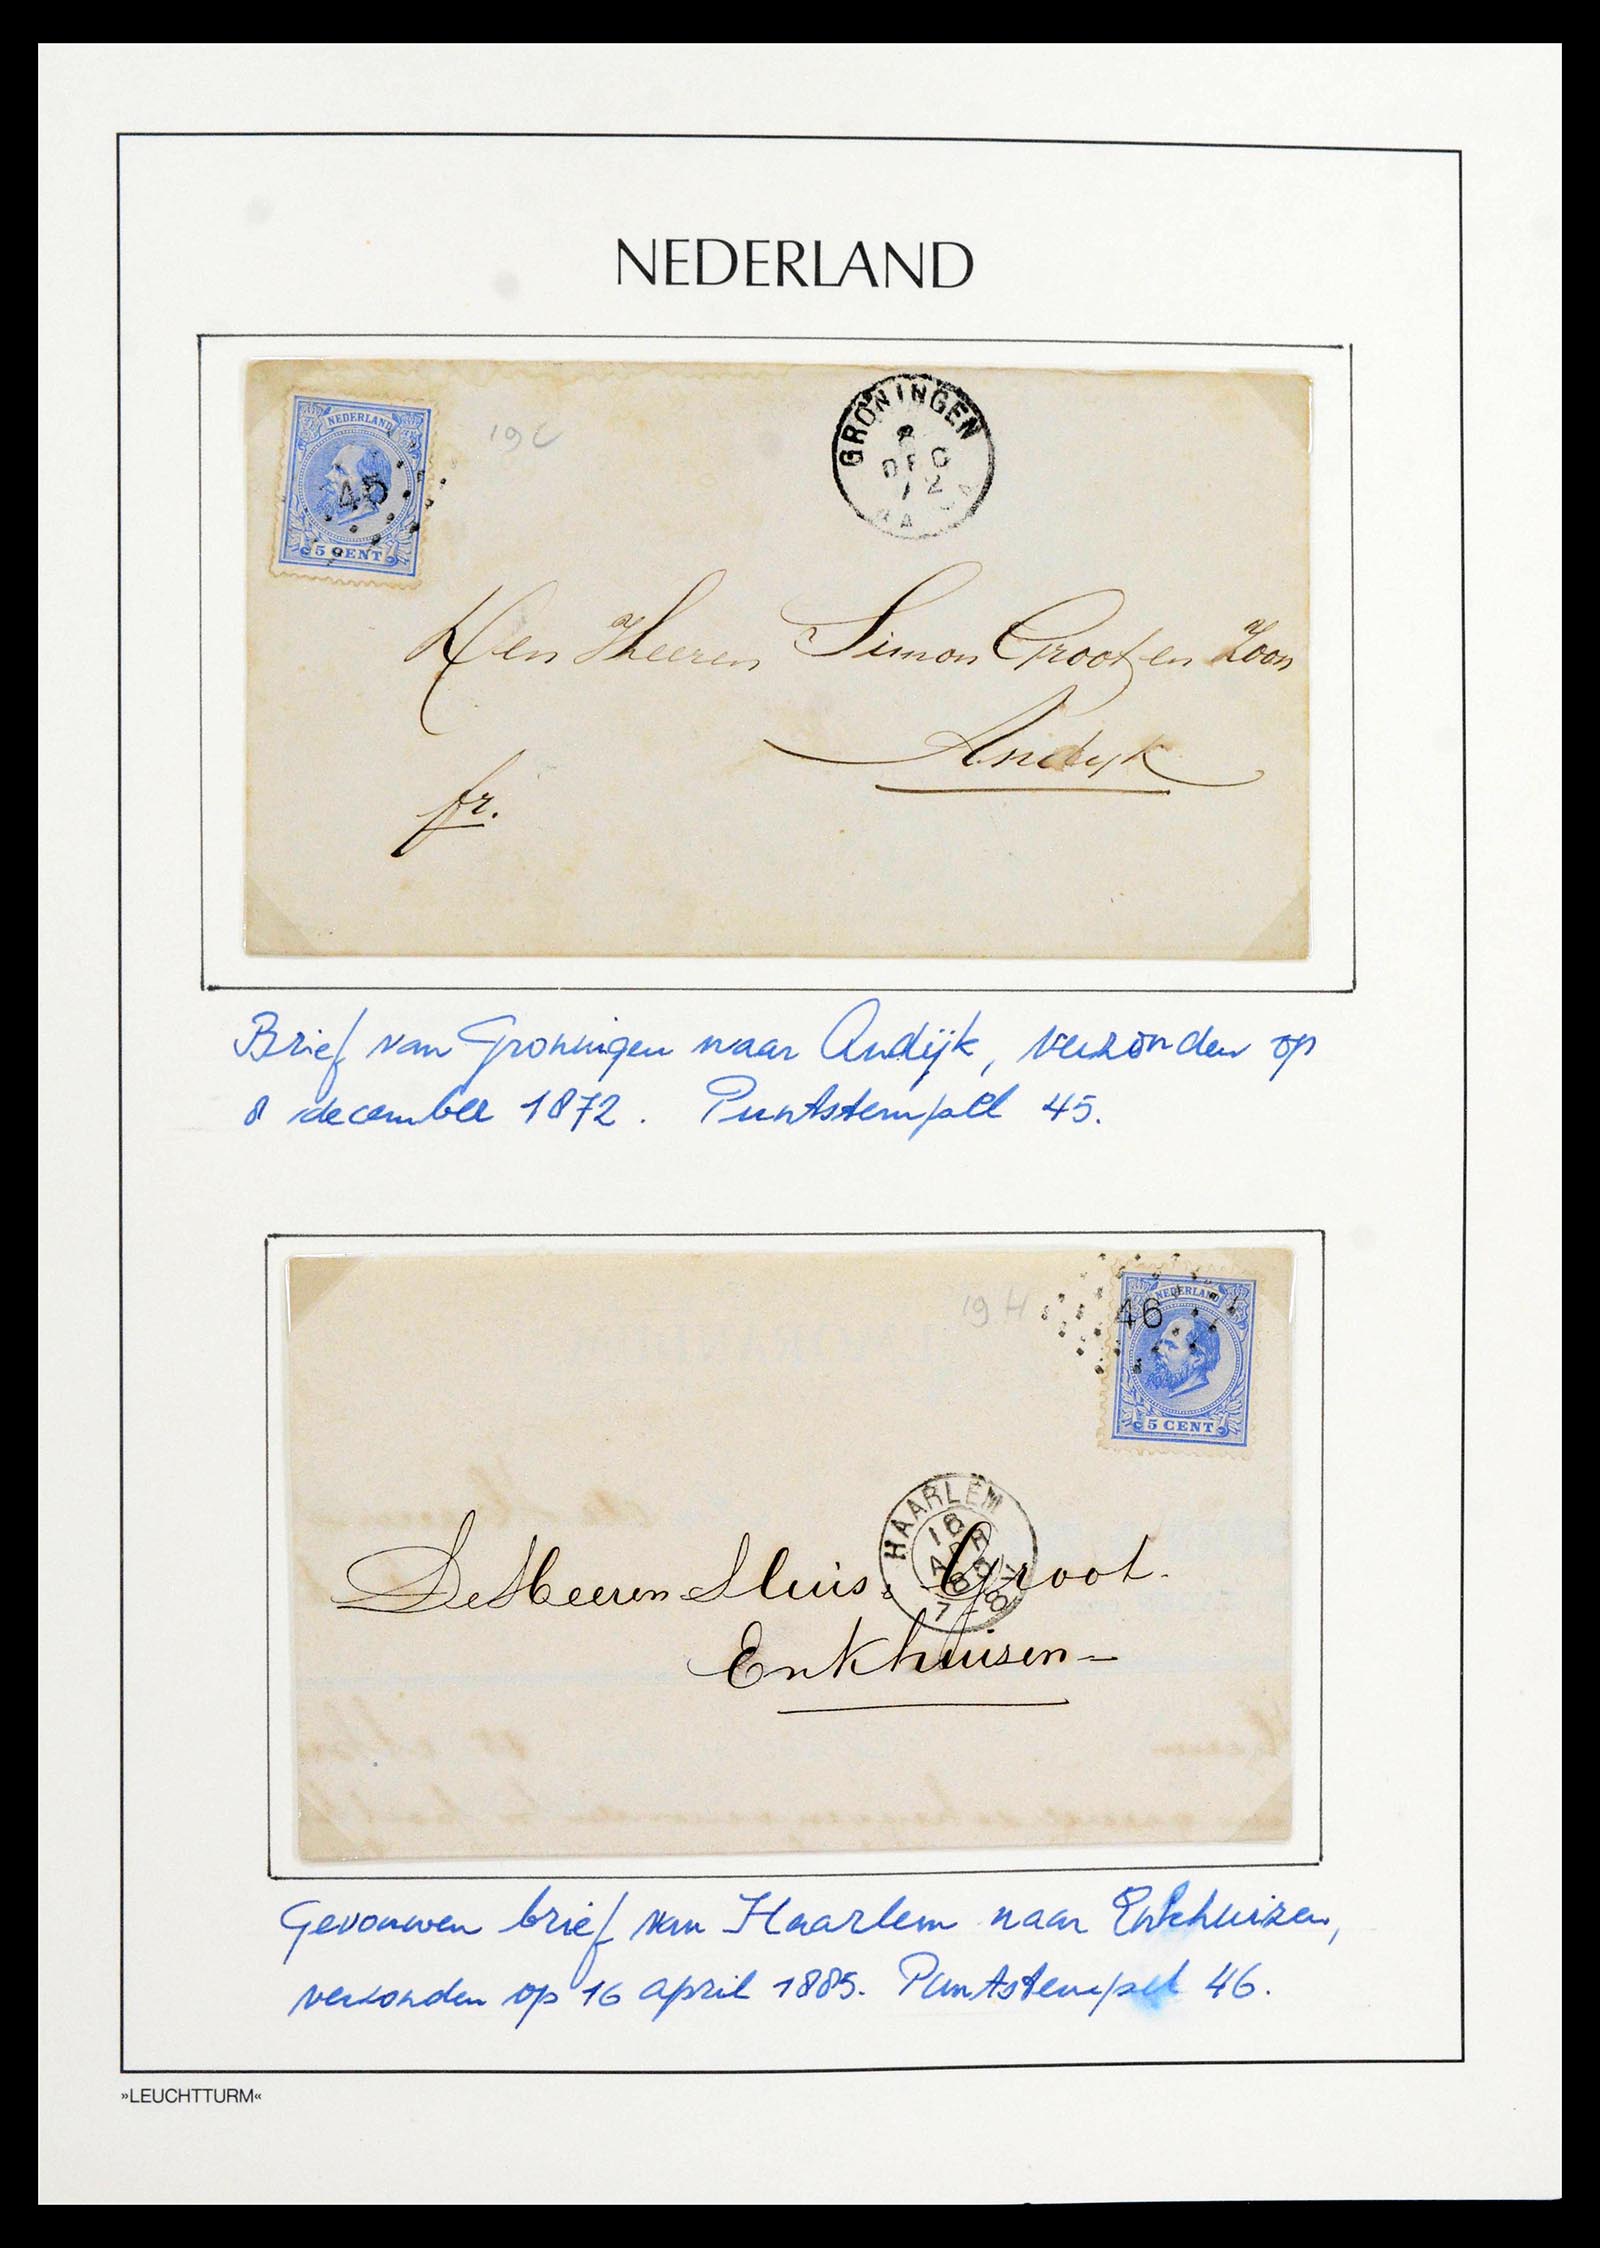 NEDERLAND
NEDERLAND
45
5 CENT
19C
GRONINGEN
8
DEC
72
Den Heeren Simon Groot en Zoon
Andijk
fr.
Brief van Groningen naar Andijk, verzonden op
8 december 1872. Puntstempel 45.
19 H
NEDERLAND
46
5 CENT
HAARLEM
16
APR
85
7-8
De Heeren Sluis & Groot.
Enkhuisen
Gevouwen brief van Haarlem naar Enkhuizen,
verzonden op 16 april 1885. Puntstempel 46.
»LEUCHTTURM«